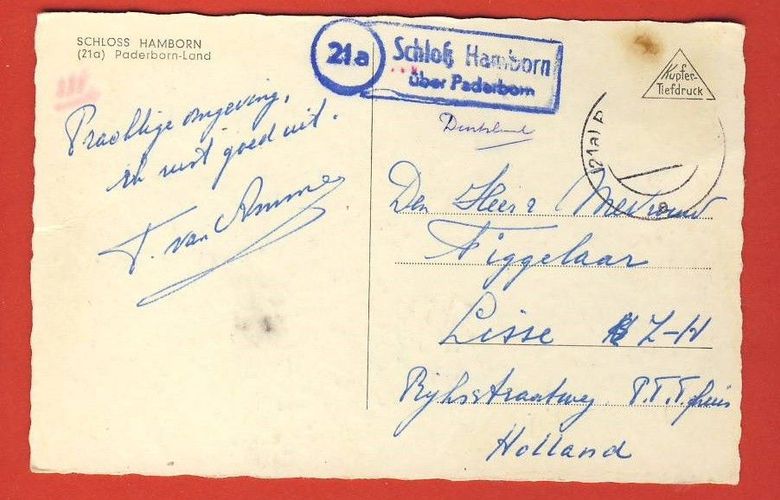 SCHLOSS HAMBORN
(21a) Paderborn-Land
Prachtige omgeving,
en rust goed uit.
T. van
21a
Schloß Hamborn
über Paderborn
Kupfer-
Tiefdruck
Deutschland
(21a) P
Den Heer Mevrouw
Figgelaar
Lisse Z-H
Rijksstraatweg P.T.T. huis
Holland